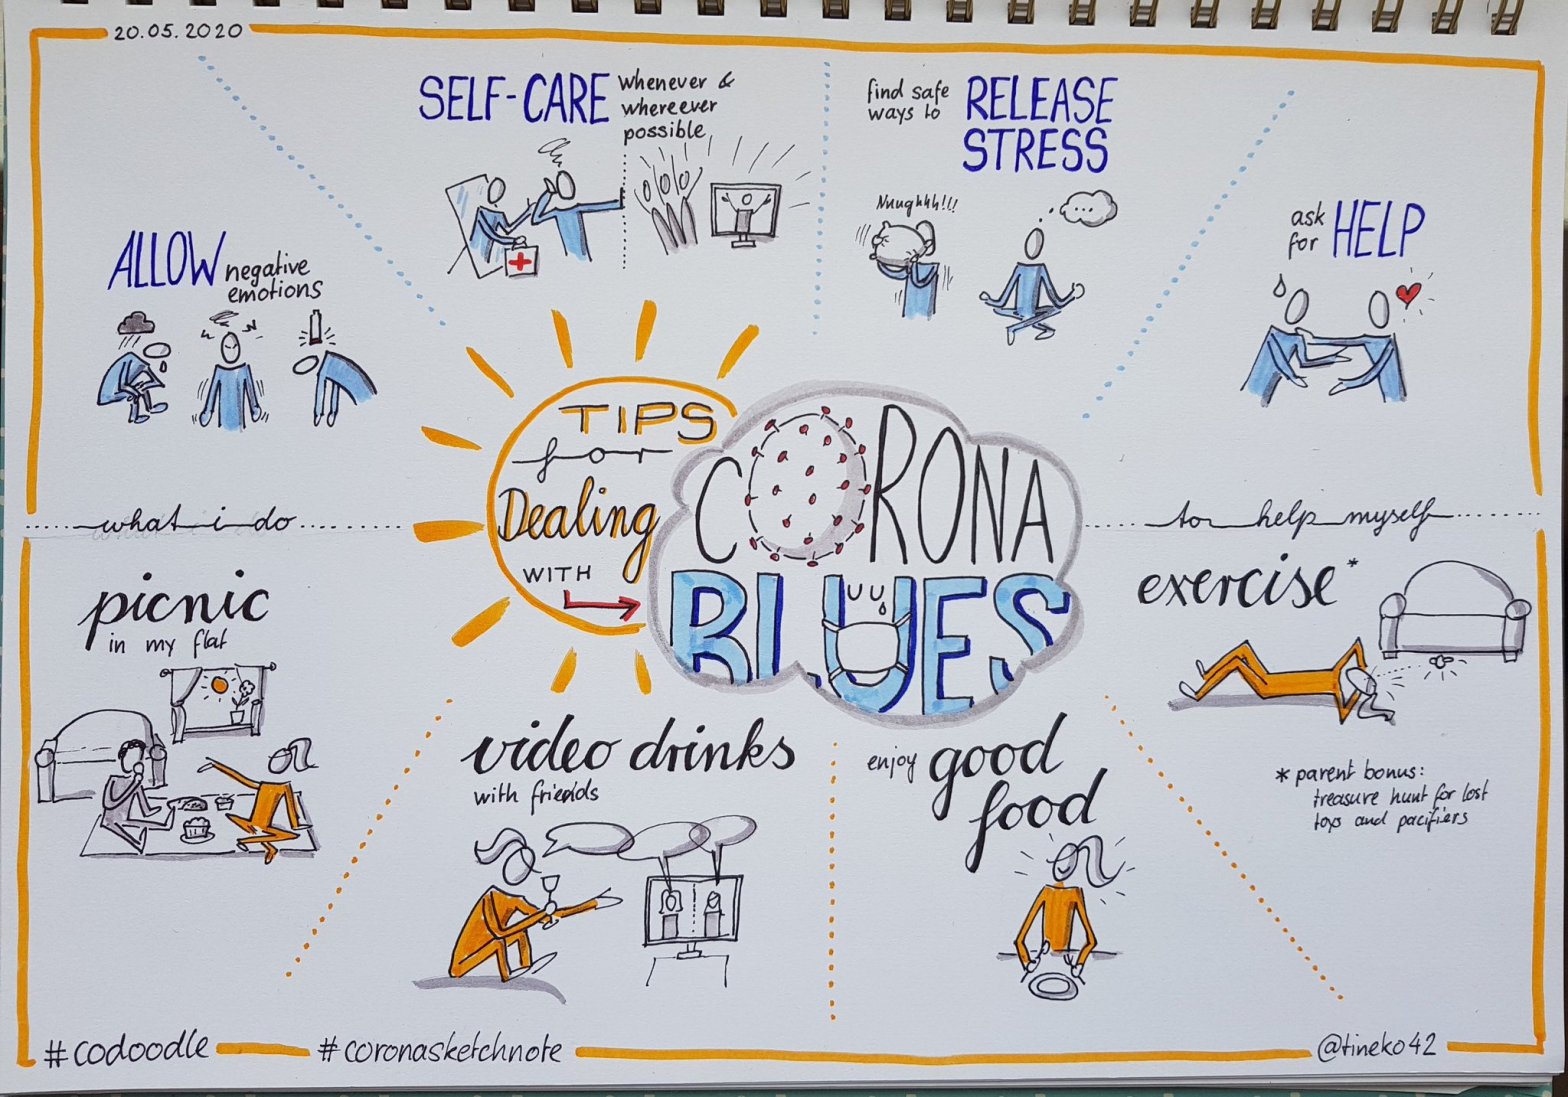 20.05.2020
SELF-CARE
whenever &
whereever
possible
find safe
ways to
RELEASE
STRESS
Nuughhh!!!
ALLOW
negative
emotions
ask
for
HELP
TIPS
for
Dealing
WITH
CORONA
BLUES
what i do
to help myself
picnic
in my flat
video drinks
with friends
enjoy
good
food
exercise*
* parent bonus:
treasure hunt for lost
toys and pacifiers
#codoodle
#coronasketchnote
@tineko42